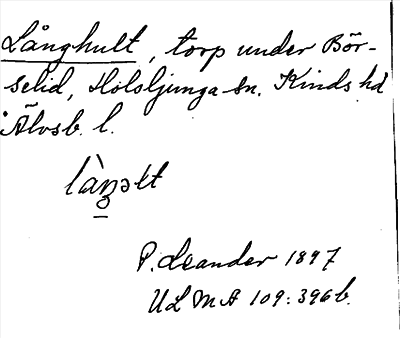 Långhult, torp under Bör-
selid, Holsljunga sn. Kinds hd
Älvsb. l.
làŋəlt
P. Leander 1897
ULMA 109:396b.